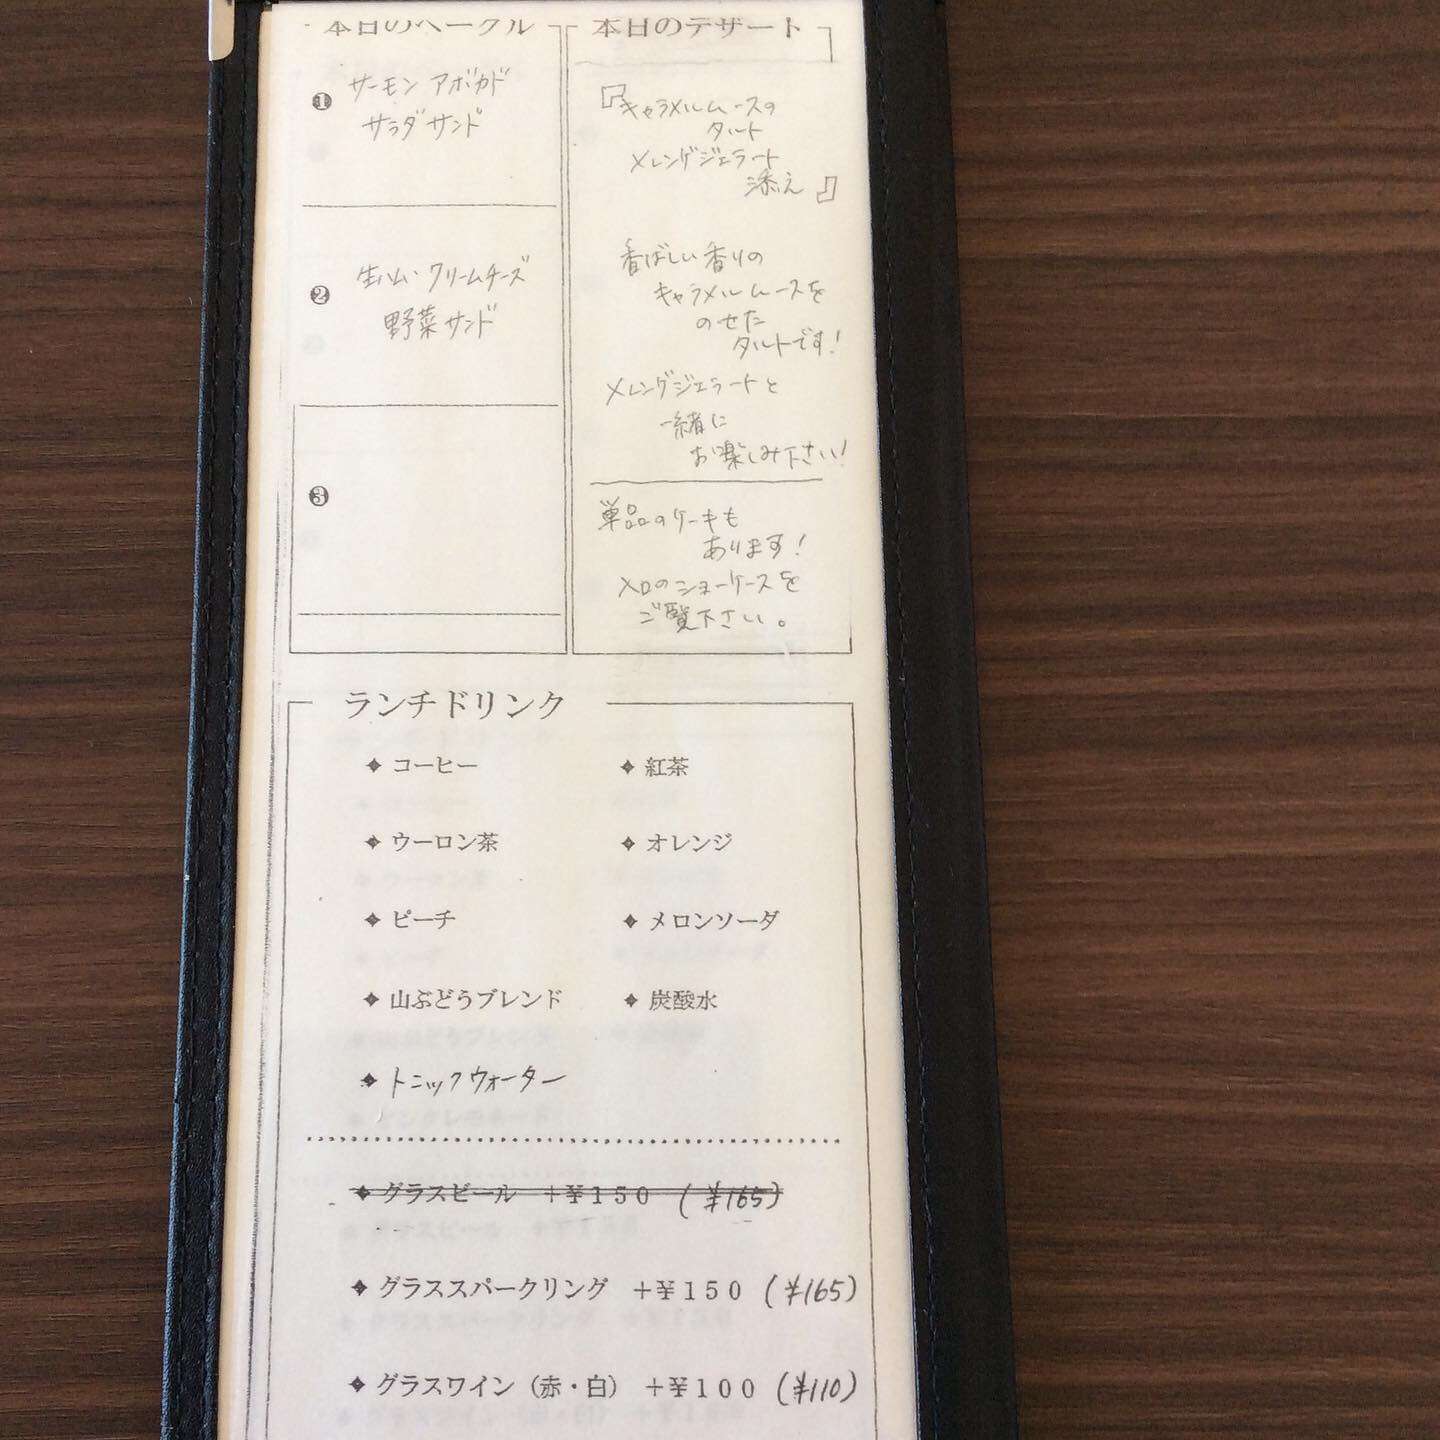 本日のベーグル
❶ サーモン アボカド
サラダサンド
❷ 生ハム・クリームチーズ
野菜サンド
❸
本日のデザート
『キャラメルムースの
タルト
メレンゲジェラート
添え』
香ばしい香りの
キャラメルムースを
のせた
タルトです!
メレンゲジェラートと
一緒に
お楽しみ下さい!
単品のケーキも
あります!
入口のショーケースを
ご覧下さい。
ランチドリンク
コーヒー
紅茶
ウーロン茶
オレンジ
ピーチ
メロンソーダ
山ぶどうブレンド
炭酸水
トニックウォーター
グラスビール +¥150 (¥165)
グラススパークリング +¥150 (¥165)
グラスワイン(赤・白) +¥100 (¥110)